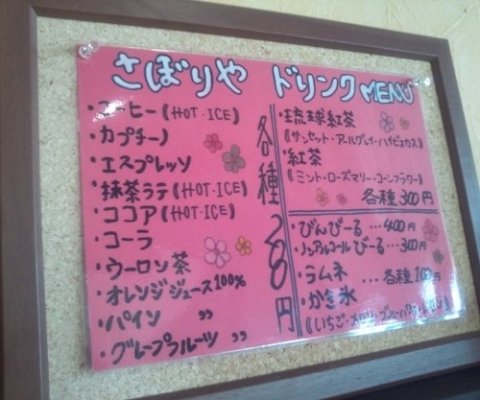 さぼりや ドリンクMENU
・コーヒー(HOT・ICE)
・カプチーノ
・エスプレッソ
・抹茶ラテ(HOT・ICE)
・ココア(HOT・ICE)
・コーラ
・ウーロン茶
・オレンジジュース100%
・パイン 〃
・グレープフルーツ 〃
各種200円
・琉球紅茶
(サンセット・アールグレイ・ハイビスカス)
・紅茶
(ミント・ローズマリー・コーンフラワー)
各種300円
・びんびーる…400円
・ノンアルコールびーる…300円
・ラムネ …各種100円
・かき氷
(いちご・メロン・ブルーハワイ